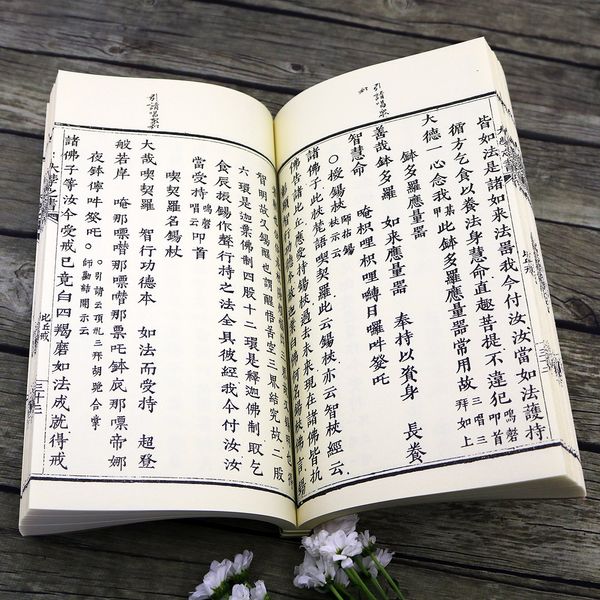 引請唱衆
皆如法是諸如來法器我今付汝汝當如法護持
循方乞食以養法身慧命直趣菩提不違犯 鳴磬叩首
大德一心念我某甲此鉢多羅應量器常用故 三唱三拜如上
鉢多羅應量器
善哉鉢多羅 如來應量器 奉持以資身 長養
智慧命 唵枳哩枳哩嚩日囉吽癹吒
○授錫杖 師拈錫杖示云
諸佛子此杖梵語喫契羅此云錫杖亦云智杖經云
佛告諸比丘應受持錫杖過去未來現在諸佛皆執
引請唱衆和
智明故又錫醒也謂醒悟苦空三界結究故二股
六環是迦葉佛制四股十二環是釋迦佛制取乞
食振錫作聲行持之法全具彼經我今付汝汝
當受持 鳴磬唱云叩首
喫契羅名錫杖
大哉喫契羅 智行功德本 如法而受持 超登
般若岸 唵那 那 那 吒鉢底那 帝娜
夜鉢儜吽癹吒 ○引請云頂禮三拜胡跪合掌 師勸結開示云
諸佛子等汝今受戒已竟自四羯磨如法成就得戒
比丘戒
三十三